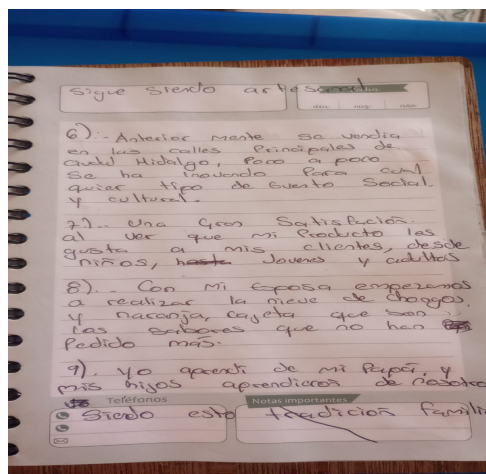 Sigue Siendo artesanal
dia mes año
6).- Anterior mente se vendia
en las calles Principales de
Ciudad Hidalgo, Poco a poco
Se ha inovando Para cual
quier tipo de Evento Social
y cultural.
7).. Una Gran Satisfacion.
al ver que mi Producto les
gusta a mis clientes, desde
niños, hasta Jovenes y adultos
8).. Con Mi Esposa empezamos
a realizar la nieve de chongos,
y naranja, cajeta que son
Los sabores que no han
Pedido mas.
9). yo aprendi de mi Papá, y
mis hijos aprendieron de nosotro
Teléfonos Notas importantes
Siendo esto tradicion famili